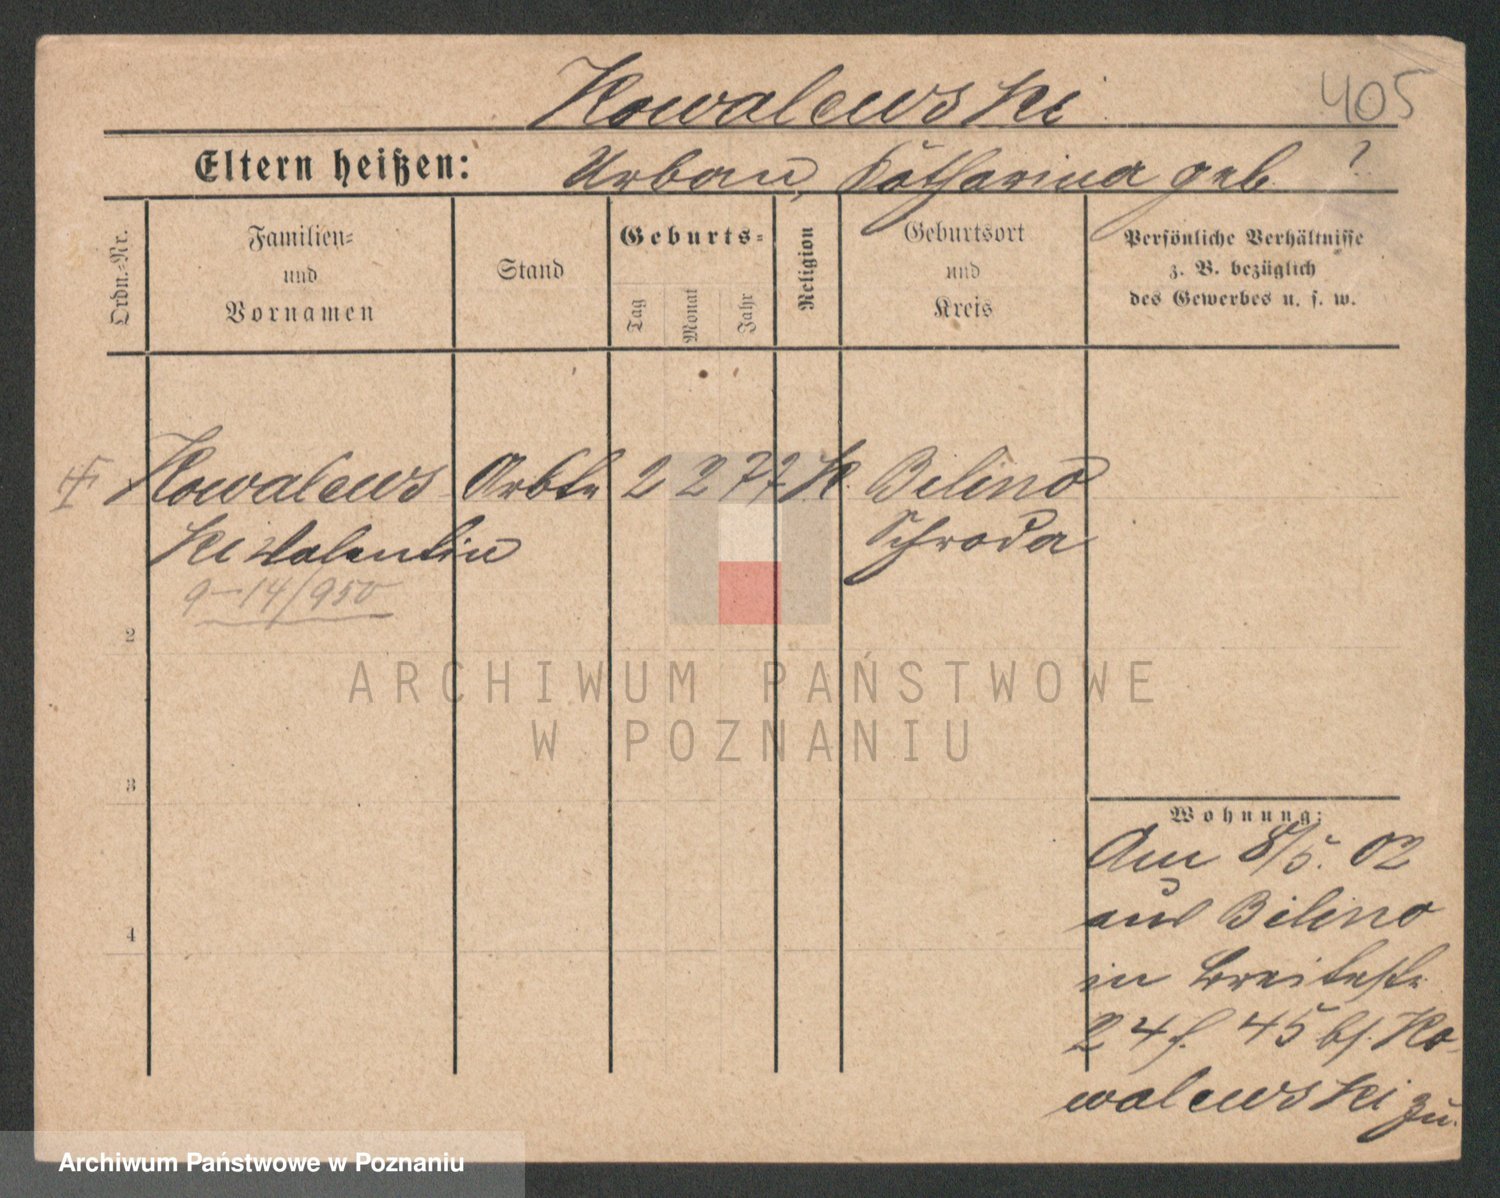 Kowalewski
405
Eltern heißen: Urban, Katharina geb. ?
Ordn.-Nr.
Familien-
und
Vornamen
Stand
Geburts-
Tag
Monat
Jahr
Religion
Geburtsort
und
Kreis
Persönliche Verhältnisse
z. B. bezüglich
des Gewerbes u. s. w.
Kowalews Arbtr 2 2 77 K. Bilino
ki Valentin Schroda
9-14/950
2
3
4
ARCHIWUM PAŃSTWOWE
W POZNANIU
Wohnung:
Am 8/5. 02
aus Bilino
in Breitestr
24 f. 45 bf. Ko-
walewski zu.
Archiwum Państwowe w Poznaniu